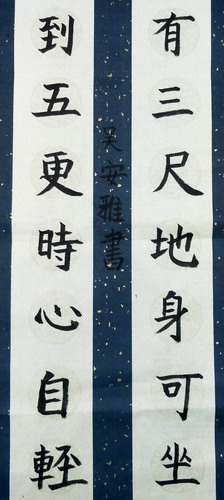 有三尺地身可坐
到五更時心自輕
吴安雅書